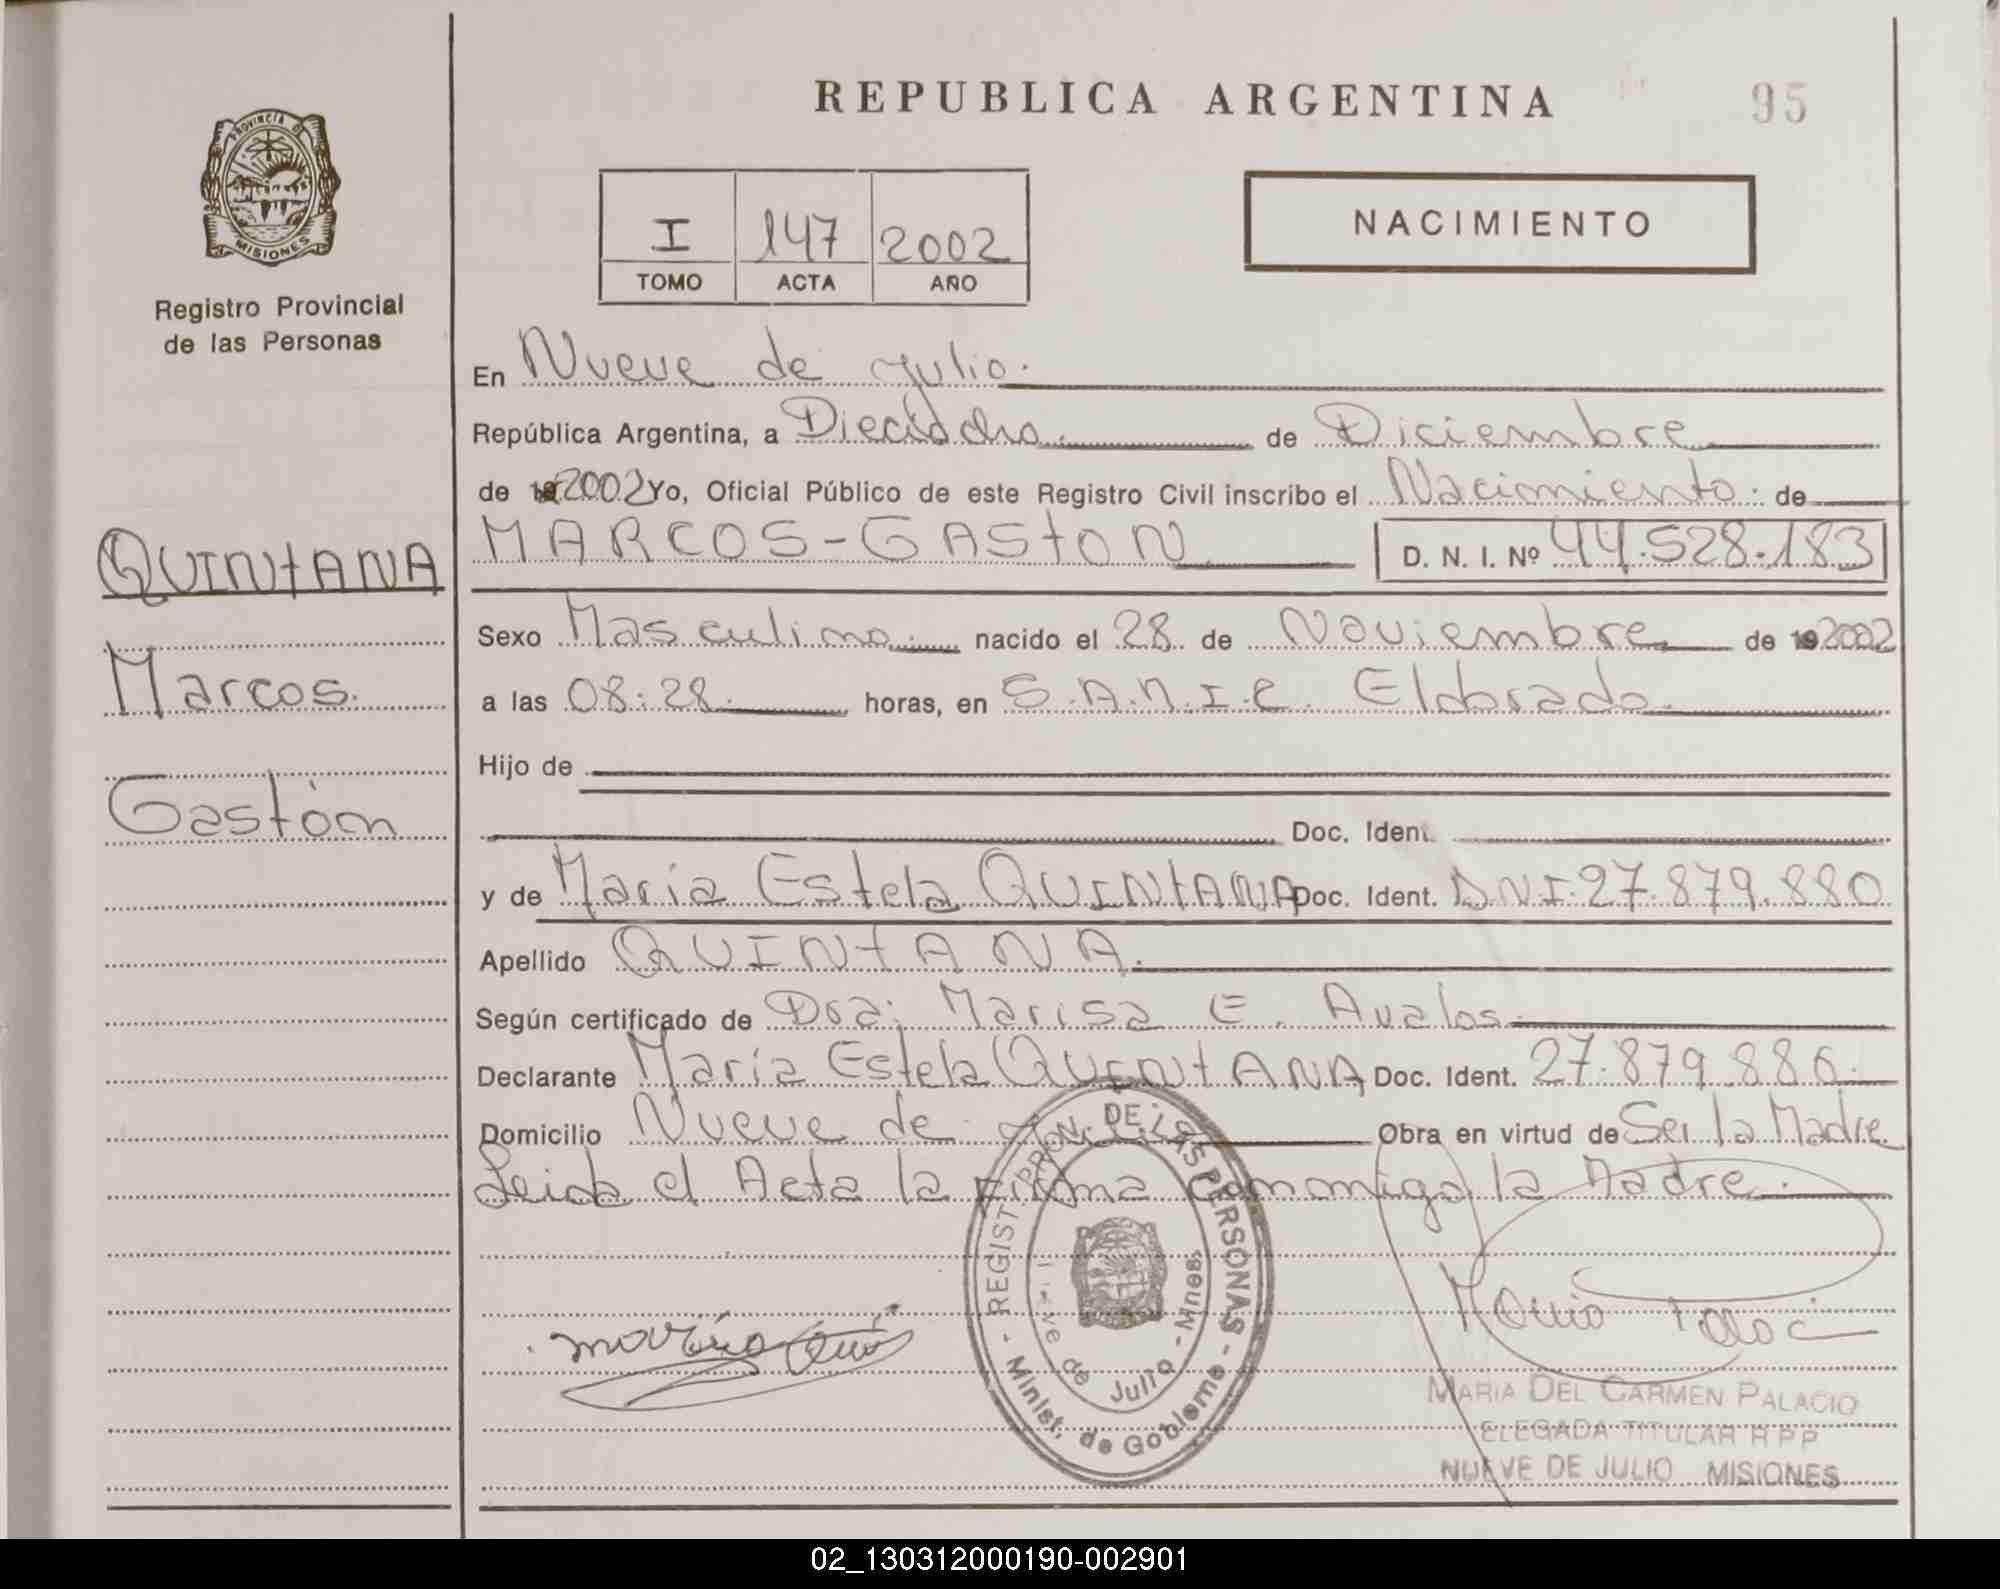 REPUBLICA ARGENTINA
95
PROVINCIA DE
MISIONES
Registro Provincial
de las Personas
I 147 2002
TOMO ACTA AÑO
NACIMIENTO
En Nueve de Julio.
República Argentina, a Dieciocho de Diciembre
de 19 2002 Yo, Oficial Público de este Registro Civil inscribo el Nacimiento de
QUINtANA
MARCOS-GAStON D. N. I. Nº 44.528.183
Sexo Masculino nacido el 28 de Noviembre de 19 2002
Marcos.
a las 08:28. horas, en S.A.M.I.C. Eldorado.
Hijo de
Gastón
Doc. Ident.
y de María Estela QUINtANA Doc. Ident. D.N.I. 27.879.880
Apellido QUINtANA.
Según certificado de Dra: Marisa E. Avalos.
Declarante María Estela QUINtANA Doc. Ident. 27.879.886.
Domicilio Nueve de Obra en virtud de Ser la Madre
Leida el Acta la Firma conmigo la Madre.
- REGIST. PROV. DE LAS PERSONAS -
Minist. de Gobierno
de Julio - Mnes.
MARIA DEL CARMEN PALACIO
ELEGADA TITULAR R P P
NUEVE DE JULIO MISIONES
02_130312000190-002901